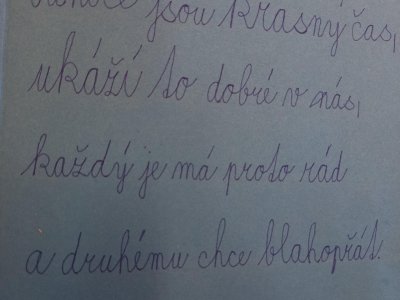 Vánoce jsou krásný čas,
ukáží to dobré v nás,
každý je má proto rád
a druhému chce blahopřát.